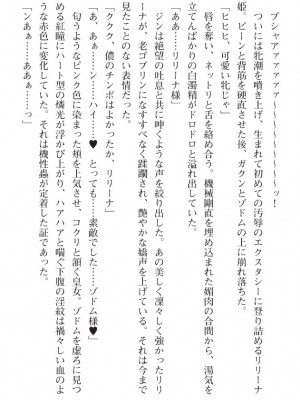 プシャアァァァァァ～～～～～～～ッ！
ついには牝潮を噴き上げ、生まれて初めての汚辱のエクスタシーに登り詰めるリリーナ
姫。ビーンと背筋を硬直させた後、ガクンとゾドムの上に崩れ落ちた。
「ヒヒヒ、可愛い牝じゃ」
唇を奪い、ネットリと舌を絡め合う。機械剛直を埋め込まれた媚肉の合間から、湯気を
立てんばかりの白濁精がドロドロと溢れ出していた。
「ああ……リリーナ様」
ジンは絶望の吐息と共に呻くような声を絞り出した。あの美しく凛々しく強かったリリ
ーナが、老ゴブリンになすすべなく蹂躙され、艶やかな嬌声を上げている。それは今まで
見たことのない表情だった。
「ククク、儂のチンポはよかったか、リリーナ」
「あ、あぁ……ン……ハイ……♥　とっても……素敵でした……ゾドム様♥」
匂うようなピンク色に染まった頬を上気させ、コクリと頷く皇女。ゾドムを虚ろに見つ
める紅瞳にハート型の燐光が浮かび上がり、ハアハアと喘ぐ下腹の淫紋は禍々しい血のよ
うな赤色に変化していた。それは機性蟲が定着した証であった。
「ンあぁ……ああぁ……っ」